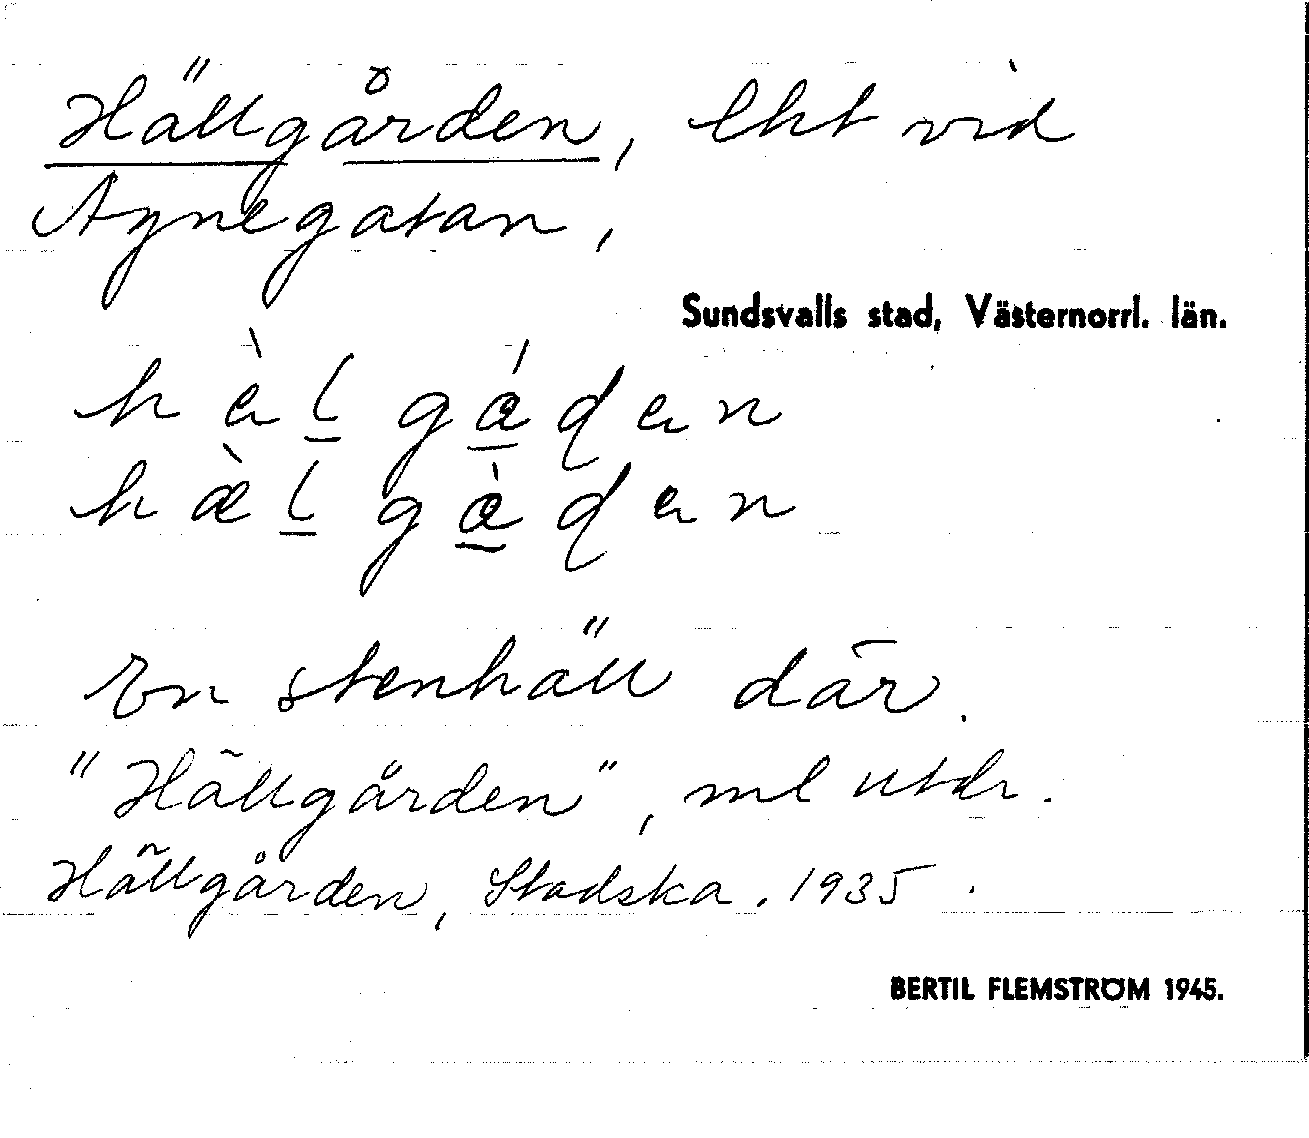 Hällgården, lht vid
Agnegatan,
Sundsvalls stad, Västernorrl. län.
En stenhäll där.
"Hällgården", ml utdr.
Hällgården, Stadska. 1935.
BERTIL FLEMSTRÖM 1945.